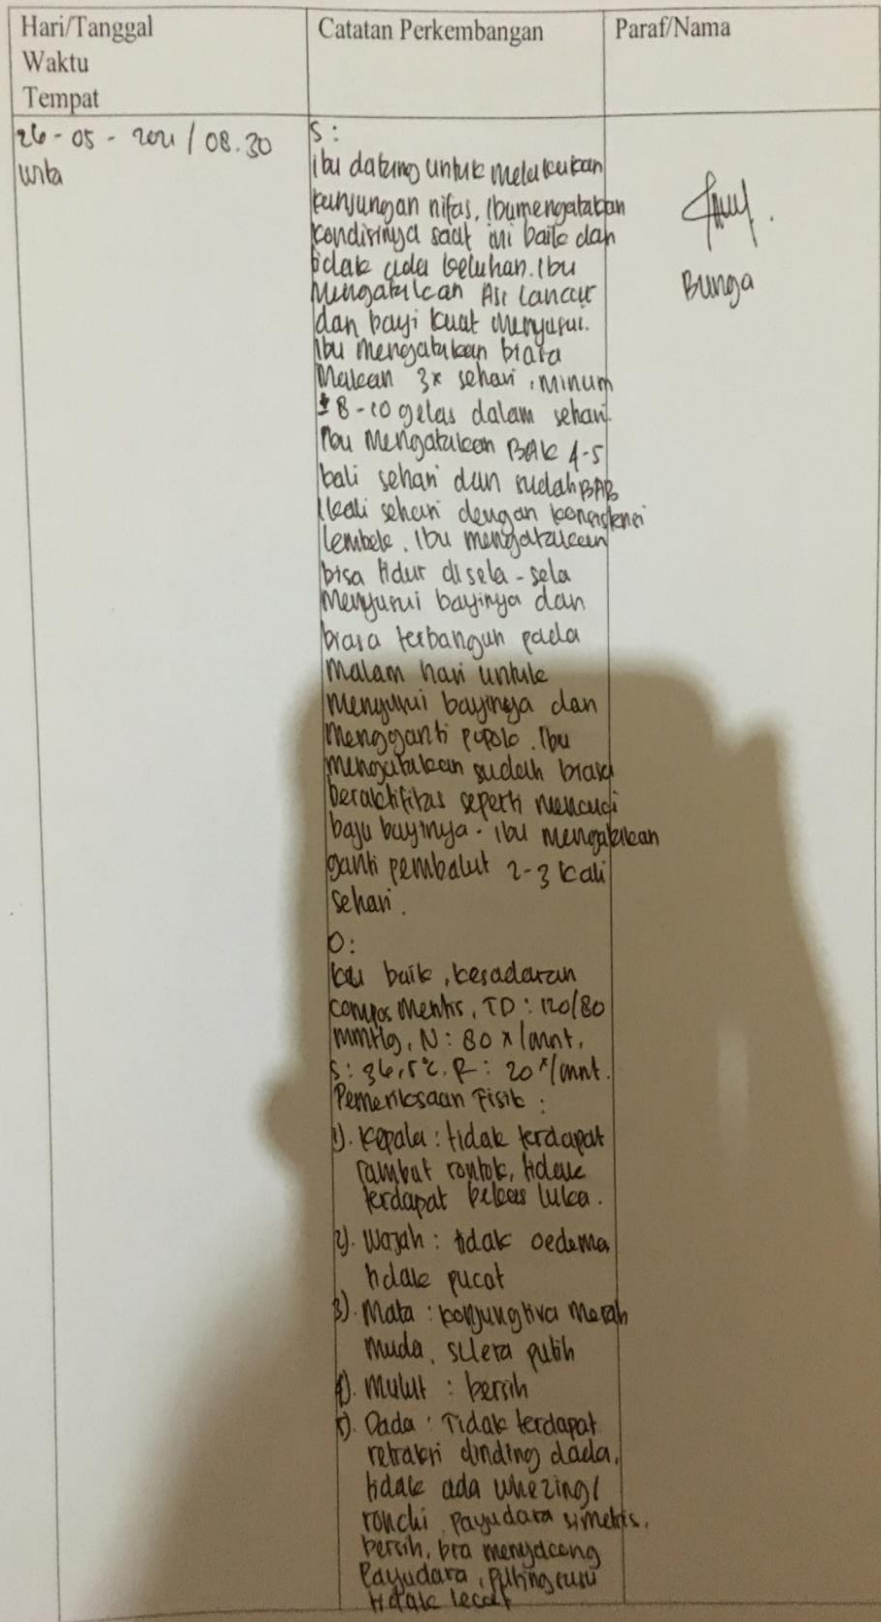 Hari/Tanggal
Waktu
Tempat
Catatan Perkembangan
Paraf/Nama
26-05-2021 / 08.30
wita
S :
ibu datang untuk melakukan
kunjungan nifas, ibu mengatakan
kondisinya saat ini baik dan
tidak ada keluhan. Ibu
mengatakan ASI lancar
dan bayi kuat menyusui.
Ibu mengatakan biasa
Makan 3x sehari, minum
± 8-10 gelas dalam sehari.
Ibu mengatakan BAK 4-5
kali sehari dan sudah BAB
1 kali sehari dengan konsistensi
lembek. Ibu mengatakan
bisa tidur disela-sela
menyusui bayinya dan
biasa terbangun pada
malam hari untuk
menyusui bayinya dan
mengganti popok. Ibu
mengatakan sudah biasa
beraktifitas seperti mencuci
baju bayinya. Ibu mengatakan
ganti pembalut 2-3 kali
sehari.
O:
ku baik, kesadaran
compos mentis, TD : 120/80
mmHg, N : 80 x/mnt,
S : 36,5°C. R : 20 x/mnt.
Pemeriksaan Fisik :
1). Kepala : tidak terdapat
rambut rontok, tidak
terdapat bekas luka.
2). Wajah : tidak oedema
tidak pucat
3). Mata : konjungtiva merah
muda, sclera putih
4). Mulut : bersih
5). Dada : Tidak terdapat
retraksi dinding dada,
tidak ada whezing/
ronchi, payudara simetris,
bersih, bra menyokong
Payudara, puting susu
tidak lecet
Bunga